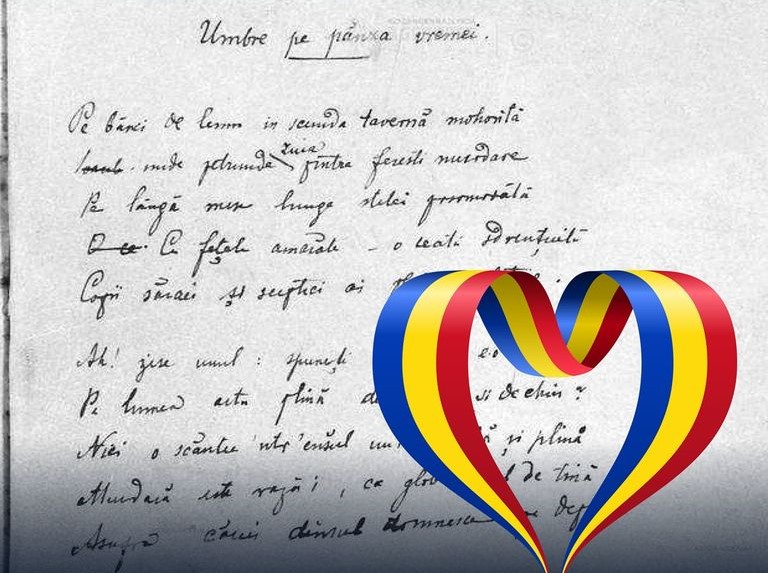 Umbre pe pânza vremei.
Pe bănci de lemn in scunda tavernă mohorîtă
unde pătrunde ziua printre feresti murdare
Pe lângă mese lunge posomorîtă
Cu fețele amarate – o ceată sdrențuită
Copii săraci și sceptici ai
Ah! zise unul : spuneți
Pe lumea asta plină și de chin?
Nici o scântee 'ntr'ensul și plină
Murdară este raza-i, ca de tină
Asupra cărui dînsul domnesce